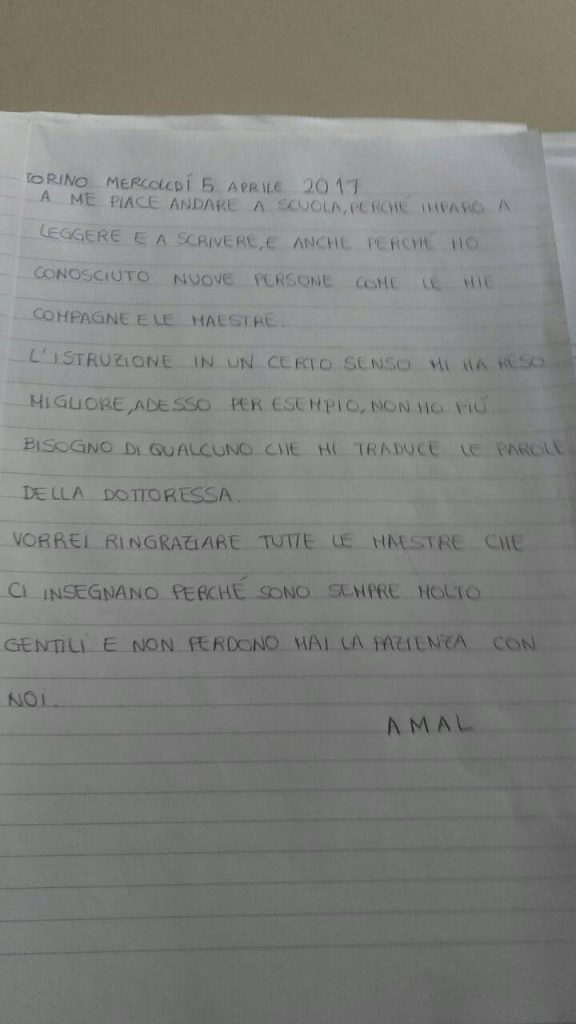 TORINO MERCOLEDÍ 5 APRILE 2017
A ME PIACE ANDARE A SCUOLA, PERCHÉ IMPARO A
LEGGERE E A SCRIVERE, E ANCHE PERCHÉ HO
CONOSCIUTO NUOVE PERSONE COME LE MIE
COMPAGNE E LE MAESTRE.
L'ISTRUZIONE IN UN CERTO SENSO MI HA RESO
MIGLIORE, ADESSO PER ESEMPIO, NON HO PIÚ
BISOGNO DI QUALCUNO CHE MI TRADUCE LE PAROLE
DELLA DOTTORESSA.
VORREI RINGRAZIARE TUTTE LE MAESTRE CHE
CI INSEGNANO PERCHÉ SONO SEMPRE MOLTO
GENTILI E NON PERDONO MAI LA PAZIENZA CON
NOI.
AMAL